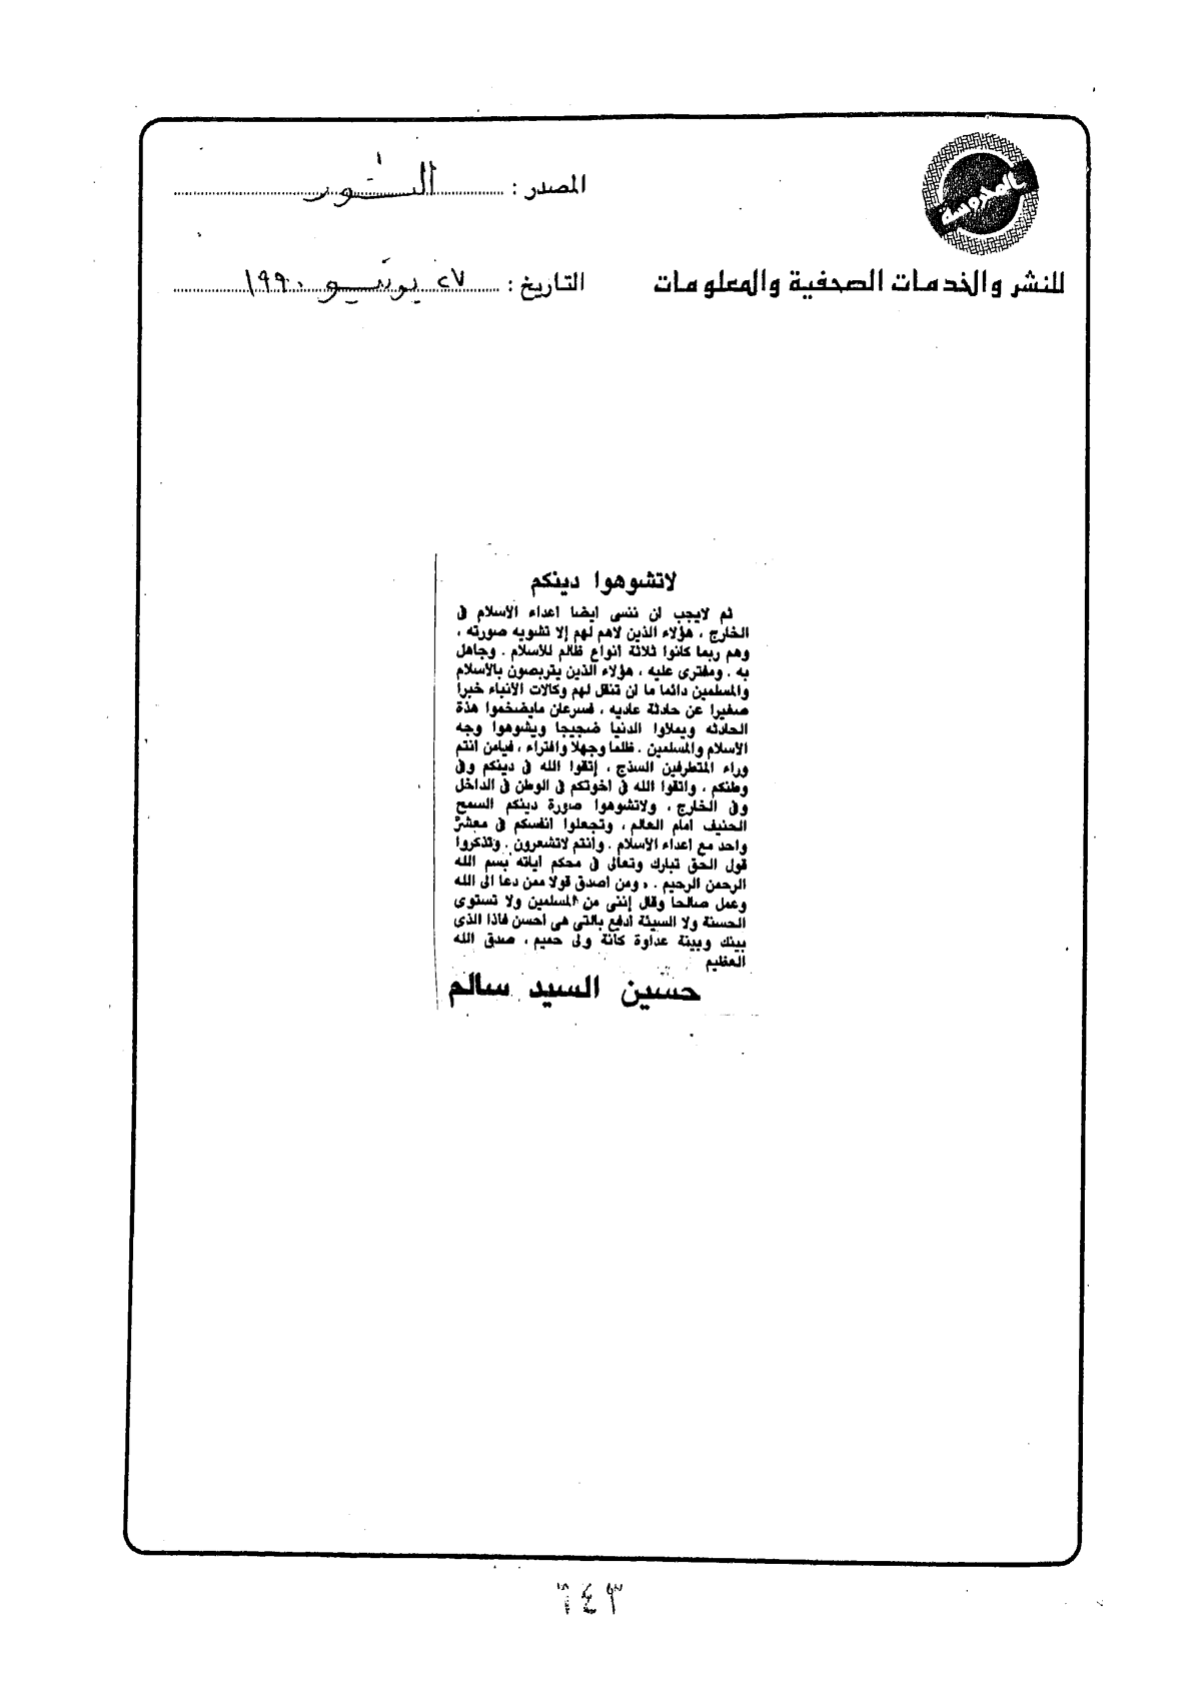 المصدر : النور
للنشر والخدمات الصحفية والمعلومات
التاريخ : ٢٧ يونيو ١٩٩٠
لاتشوهوا دينكم
ثم لايجب ان ننسى ايضا اعداء الاسلام فى
الخارج ، هؤلاء الذين لاهم لهم إلا تشويه صورته ،
وهم ربما كانوا ثلاثة انواع ظالم للاسلام . وجاهل
به . ومفترى عليه ، هؤلاء الذين يتربصون بالاسلام
والمسلمين دائما ما ان تنقل لهم وكالات الأنباء خبرا
صغيرا عن حادثة عاديه ، فسرعان مايضخموا هذة
الحادثه ويملاوا الدنيا ضجيجا ويشوهوا وجه
الاسلام والمسلمين . ظلما وجهلا وافتراء ، فيامن انتم
وراء المتطرفين السذج ، إتقوا الله فى دينكم وفى
وطنكم ، واتقوا الله فى اخوتكم فى الوطن فى الداخل
وفى الخارج ، ولاتشوهوا صورة دينكم السمح
الحنيف امام العالم ، وتجعلوا انفسكم فى معشر
واحد مع اعداء الاسلام . وأنتم لاتشعرون . وتذكروا
قول الحق تبارك وتعالى فى محكم اياته بسم الله
الرحمن الرحيم . ، ومن اصدق قولا ممن دعا الى الله
وعمل صالحا وقال إننى من المسلمين ولا تستوى
الحسنة ولا السيئة ادفع بالتى هى احسن فاذا الذى
بينك وبينة عداوة كأنة ولى حميم ، صدق الله
العظيم
حسين السيد سالم
٦٤٣